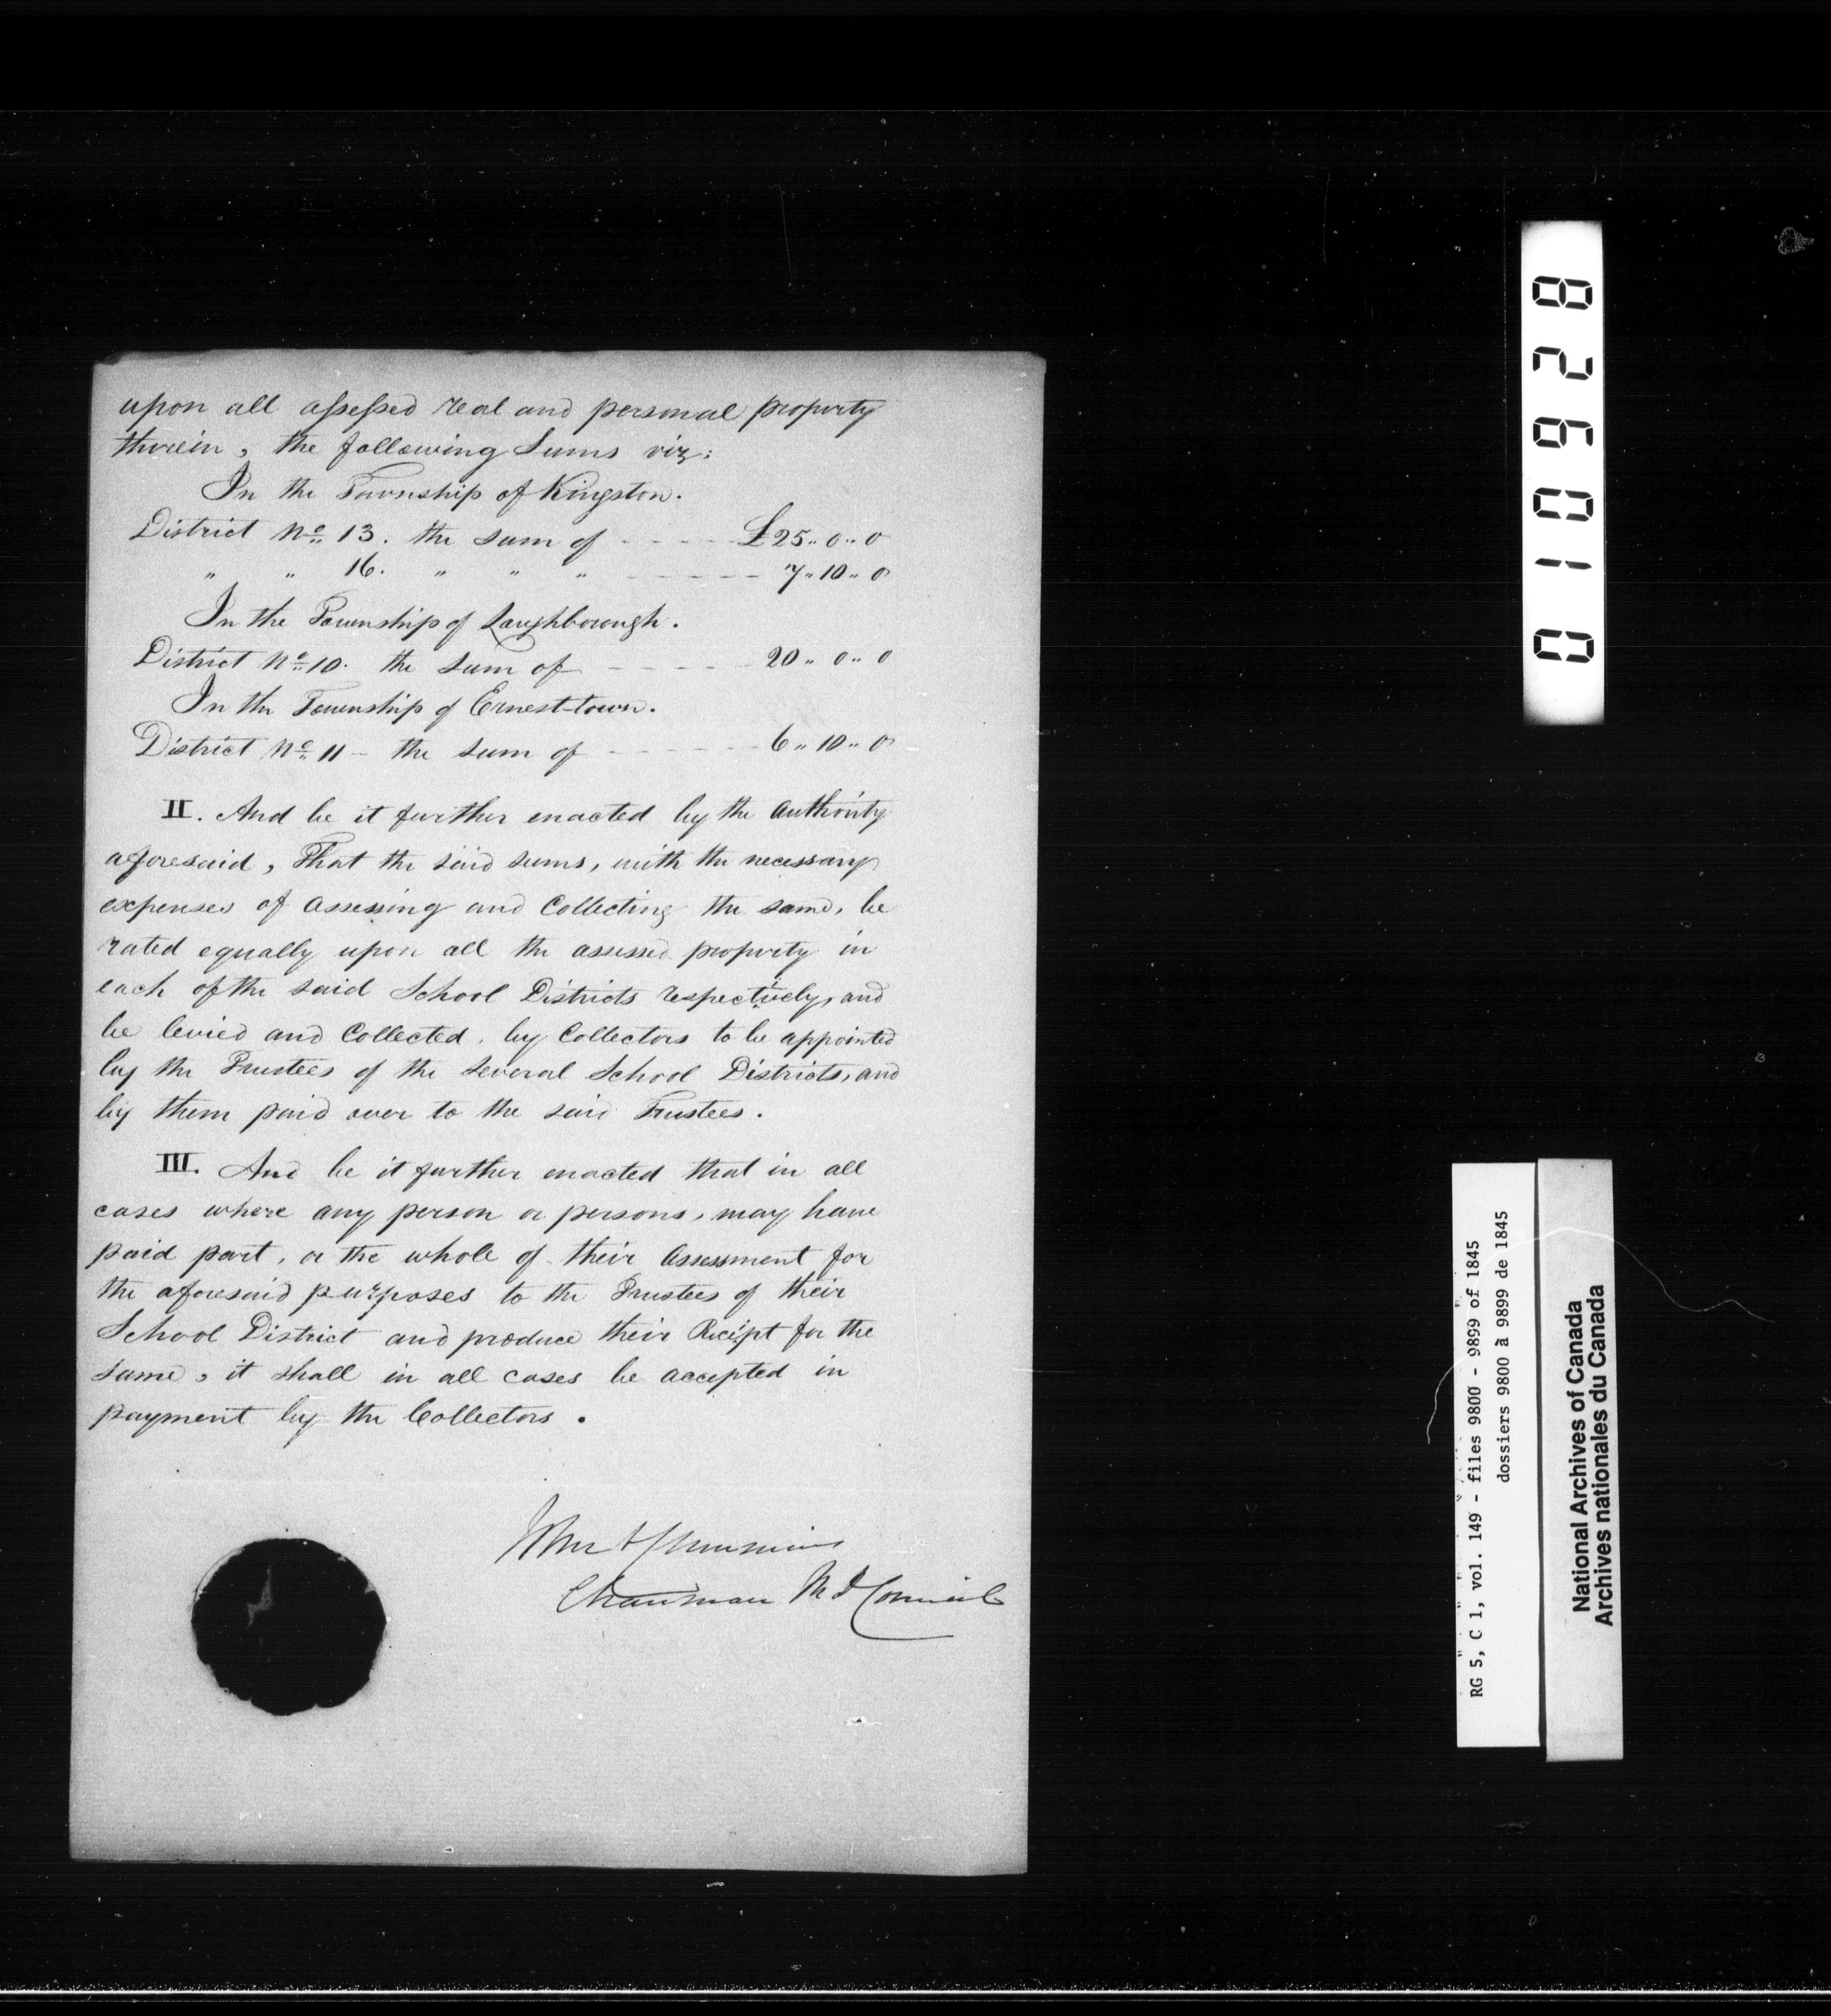 upon all assessed real and personal property
therein, the following Sums viz:
In the Township of Kingston.
District No. 13. the sum of - - - - - £25.. 0.. 0
" " 16. " " " - - - - - - 7.. 10.. 0
In the Township of Loughborough.
District No. 10. the Sum of - - - - - 20.. 0.. 0
In the Township of Ernest-town.
District No. 11 - the Sum of - - - - - - 6.. 10.. 0
II. And be it further enacted by the Authority
aforesaid, That the said sums, with the necessary
expenses of Assessing and Collecting the same, be
rated equally upon all the assessed property in
each of the said School Districts respectively, and
be levied and Collected, by Collectors to be appointed
by the Trustees of the Several School Districts, and
by them paid over to the said Trustees.
III. And be it further enacted that in all
cases where any person or persons, may have
paid part, or the whole of their Assessment for
the aforesaid purposes to the Trustees of their
School District and produce their Receipt for the
same, it shall in all cases be accepted in
payment by the Collectors.
John
Chairman M D Council
010928
RG 5, C 1, vol. 149 - files 9800 - 9899 of 1845
dossiers 9800 à 9899 de 1845
National Archives of Canada
Archives nationales du Canada